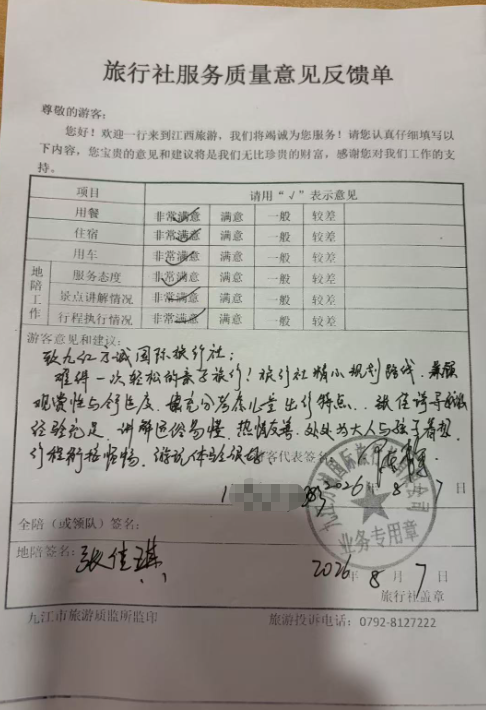 旅行社服务质量意见反馈单
尊敬的游客：
您好！欢迎一行来到江西旅游，我们将竭诚为您服务！请您认真仔细填写以
下内容，您宝贵的意见和建议将是我们无比珍贵的财富，感谢您对我们工作的支
持。
项目 请用“√”表示意见
用餐 非常满意 满意 一般 较差
住宿 非常满意 满意 一般 较差
用车 非常满意 满意 一般 较差
地陪工作
服务态度 非常满意 满意 一般 较差
景点讲解情况 非常满意 满意 一般 较差
行程执行情况 非常满意 满意 一般 较差
游客意见和建议：
致九江方诚国际旅行社：
难得一次轻松的亲子旅行！旅行社精心规划路线，兼顾
观赏性与舒适度，充分考虑儿童出行特点，张佳
经验充足，讲解通俗易懂，热情友善，处处为大人与孩子着想，
行程衔接顺畅，游玩体验很好
客代表签名：
2026年8月7日
业务专用章
全陪（或领队）签名：
地陪签名：张佳琪
2026年8月7日
旅行社盖章
九江市旅游质监所监印 旅游投诉电话：0792-8127222